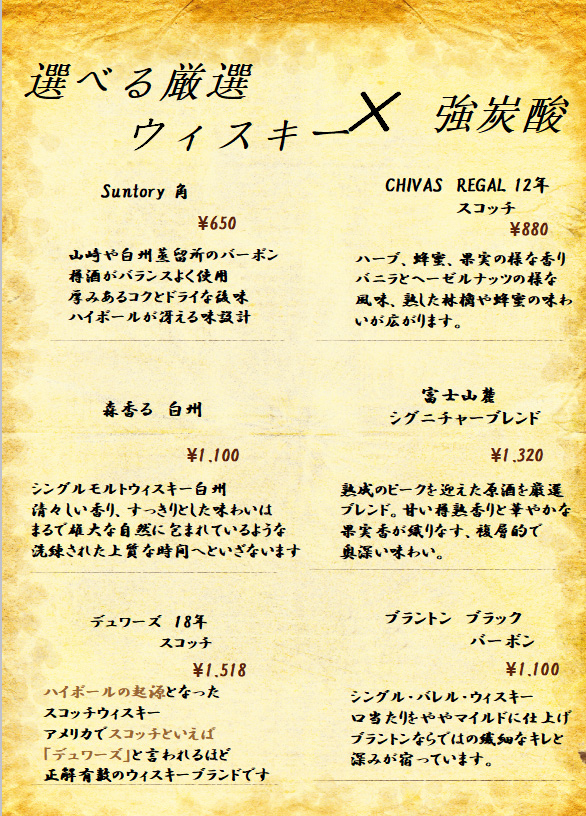 選べる厳選
ウィスキー × 強炭酸
Suntory 角
¥650
山崎や白州蒸留所のバーボン
樽酒がバランスよく使用
厚みあるコクとドライな後味
ハイボールが冴える味設計
CHIVAS REGAL 12年
スコッチ
¥880
ハーブ、蜂蜜、果実の様な香り
バニラとヘーゼルナッツの様な
風味、熟した林檎や蜂蜜の味わ
いが広がります。
森香る 白州
¥1,100
シングルモルトウィスキー白州
清々しい香り、すっきりとした味わいは
まるで雄大な自然に包まれているような
洗練された上質な時間へといざないます
富士山麓
シグニチャーブレンド
¥1,320
熟成のピークを迎えた原酒を厳選
ブレンド。甘い樽熟香りと華やかな
果実香が織りなす、複層的で
奥深い味わい。
デュワーズ 18年
スコッチ
¥1,518
ハイボールの起源となった
スコッチウィスキー
アメリカでスコッチといえば
「デュワーズ」と言われるほど
正解有数のウィスキーブランドです
ブラントン ブラック
バーボン
¥1,100
シングル・バレル・ウィスキー
口当たりをややマイルドに仕上げ
ブラントンならではの繊細なキレと
深みが宿っています。